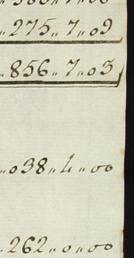 275,, 7,, 09
856,, 7,, 03
038,, 4,, 00
262,, 0,, 00